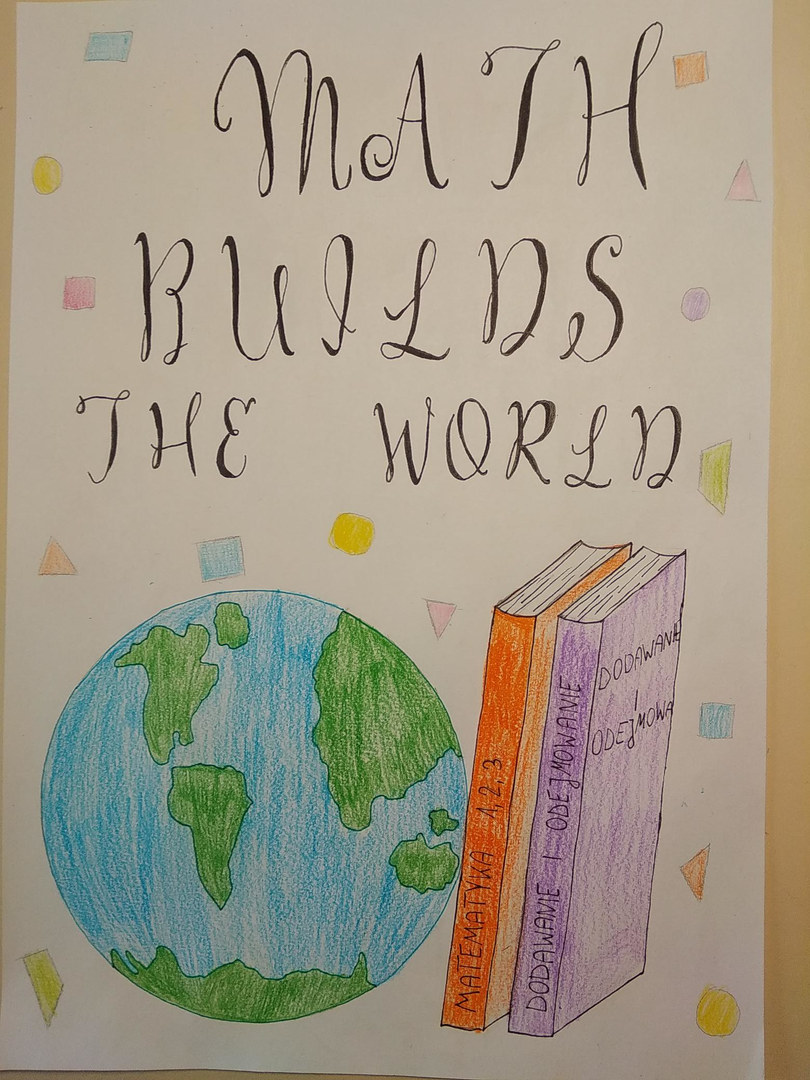 MATH
BUILDS
THE WORLD
MATEMATYKA 1, 2, 3
DODAWANIE I ODEJMOWANIE
DODAWANIE
I
ODEJMOWA